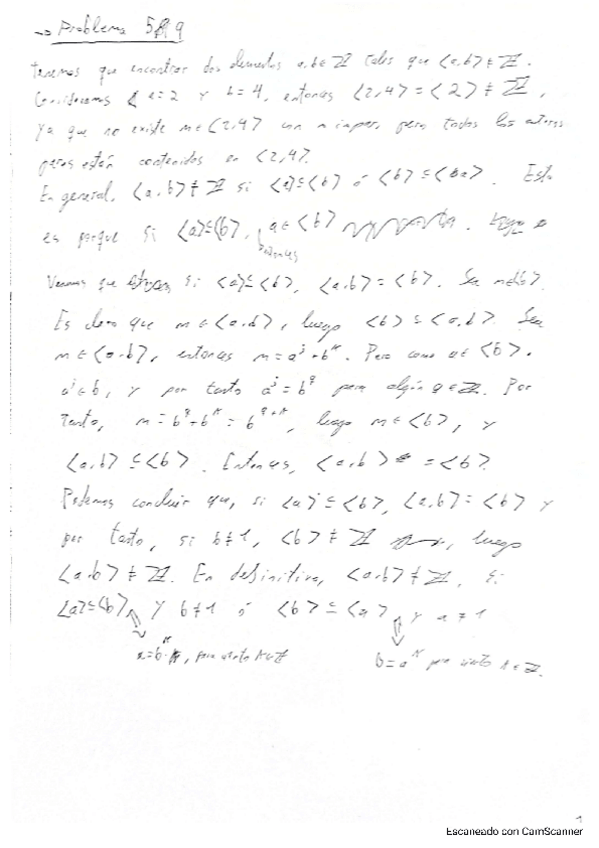 → Problema 5.A 9
Tenemos que encontrar dos elementos a,b ∈ ℤ tales que <a,b> ≠ ℤ.
Consideramos a=2 y b=4, entonces <2,4> = <2> ≠ ℤ,
ya que no existe m ∈ <2,4> con m impar, pero todos los enteros
pares están contenidos en <2,4>.
En general, <a,b> ≠ ℤ si <a> ⊆ <b> ó <b> ⊆ <a>. Esto
es porque si <a> ⊆ <b>, a ∈ <b>
entonces
Veamos que si <a> ⊆ <b>, <a,b> = <b>. Sea m ∈ <b>.
Es claro que m ∈ <a,b>, luego <b> ⊆ <a,b>. Sea
m ∈ <a,b>, entonces m = a^j + b^k. Pero como a ∈ <b>,
a^j ∈ b, y por tanto a^j = b^q para algún q ∈ ℤ. Por
tanto, m = b^q + b^k = b^{q+k}, luego m ∈ <b>, y
<a,b> ⊆ <b>. Entonces, <a,b> = <b>.
Podemos concluir que, si <a> ⊆ <b>, <a,b> = <b> y
por tanto, si b ≠ 1, <b> ≠ ℤ, luego
<a,b> ≠ ℤ. En definitiva, <a,b> ≠ ℤ, si
<a> ⊆ <b> y b ≠ 1 ó <b> ⊆ <a> y a ≠ 1
a = b·k, para cierto k ∈ ℤ b = a^k para cierto k ∈ ℤ.
1
Escaneado con CamScanner